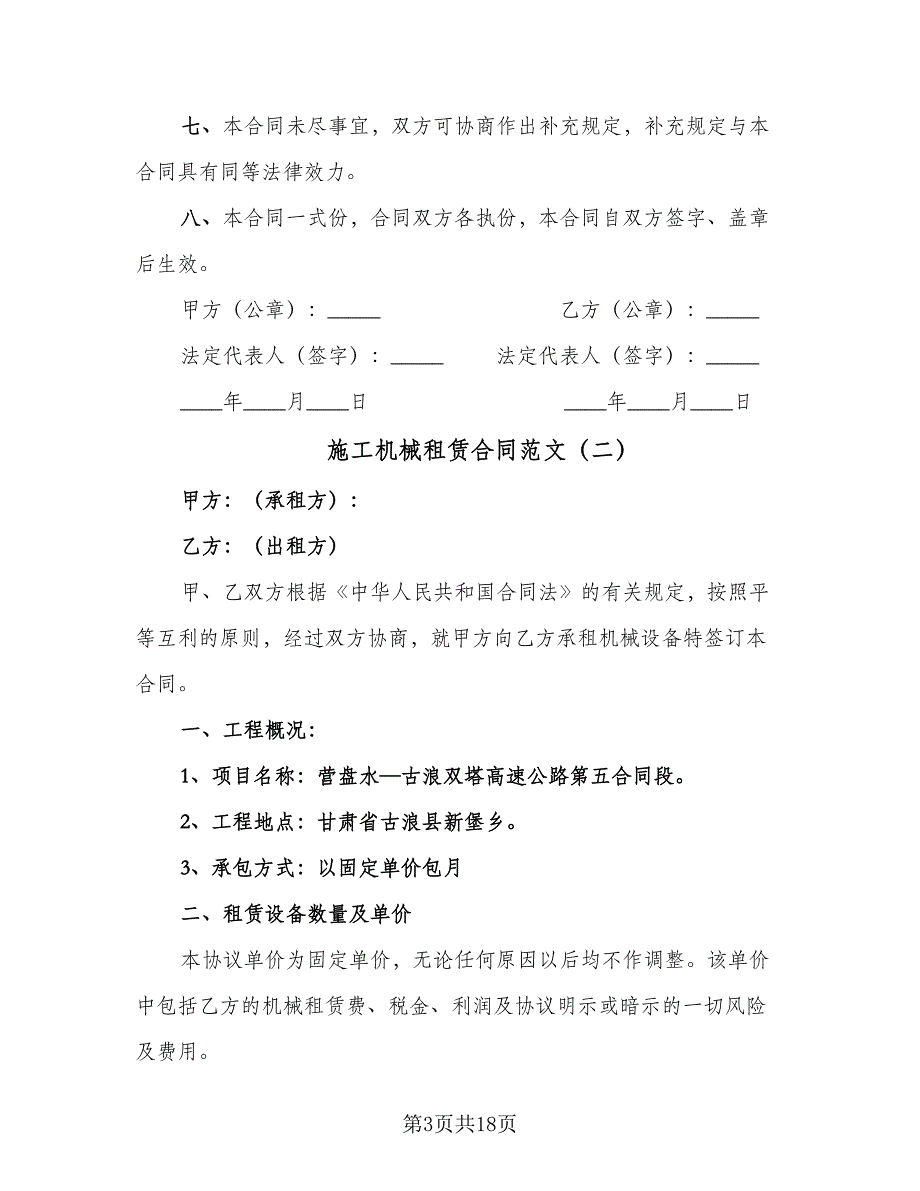 七、本合同未尽事宜，双方可协商作出补充规定，补充规定与本
合同具有同等法律效力。
八、本合同一式份，合同双方各执份，本合同自双方签字、盖章
后生效。
甲方（公章）：_____ 乙方（公章）：_____
法定代表人（签字）：_____ 法定代表人（签字）：_____
____年____月____日 ____年____月____日
施工机械租赁合同范文（二）
甲方：（承租方）：
乙方：（出租方）
甲、乙双方根据《中华人民共和国合同法》的有关规定，按照平
等互利的原则，经过双方协商，就甲方向乙方承租机械设备特签订本
合同。
一、工程概况：
1、项目名称：营盘水—古浪双塔高速公路第五合同段。
2、工程地点：甘肃省古浪县新堡乡。
3、承包方式：以固定单价包月
二、租赁设备数量及单价
本协议单价为固定单价，无论任何原因以后均不作调整。该单价
中包括乙方的机械租赁费、税金、利润及协议明示或暗示的一切风险
及费用。
第3页共18页